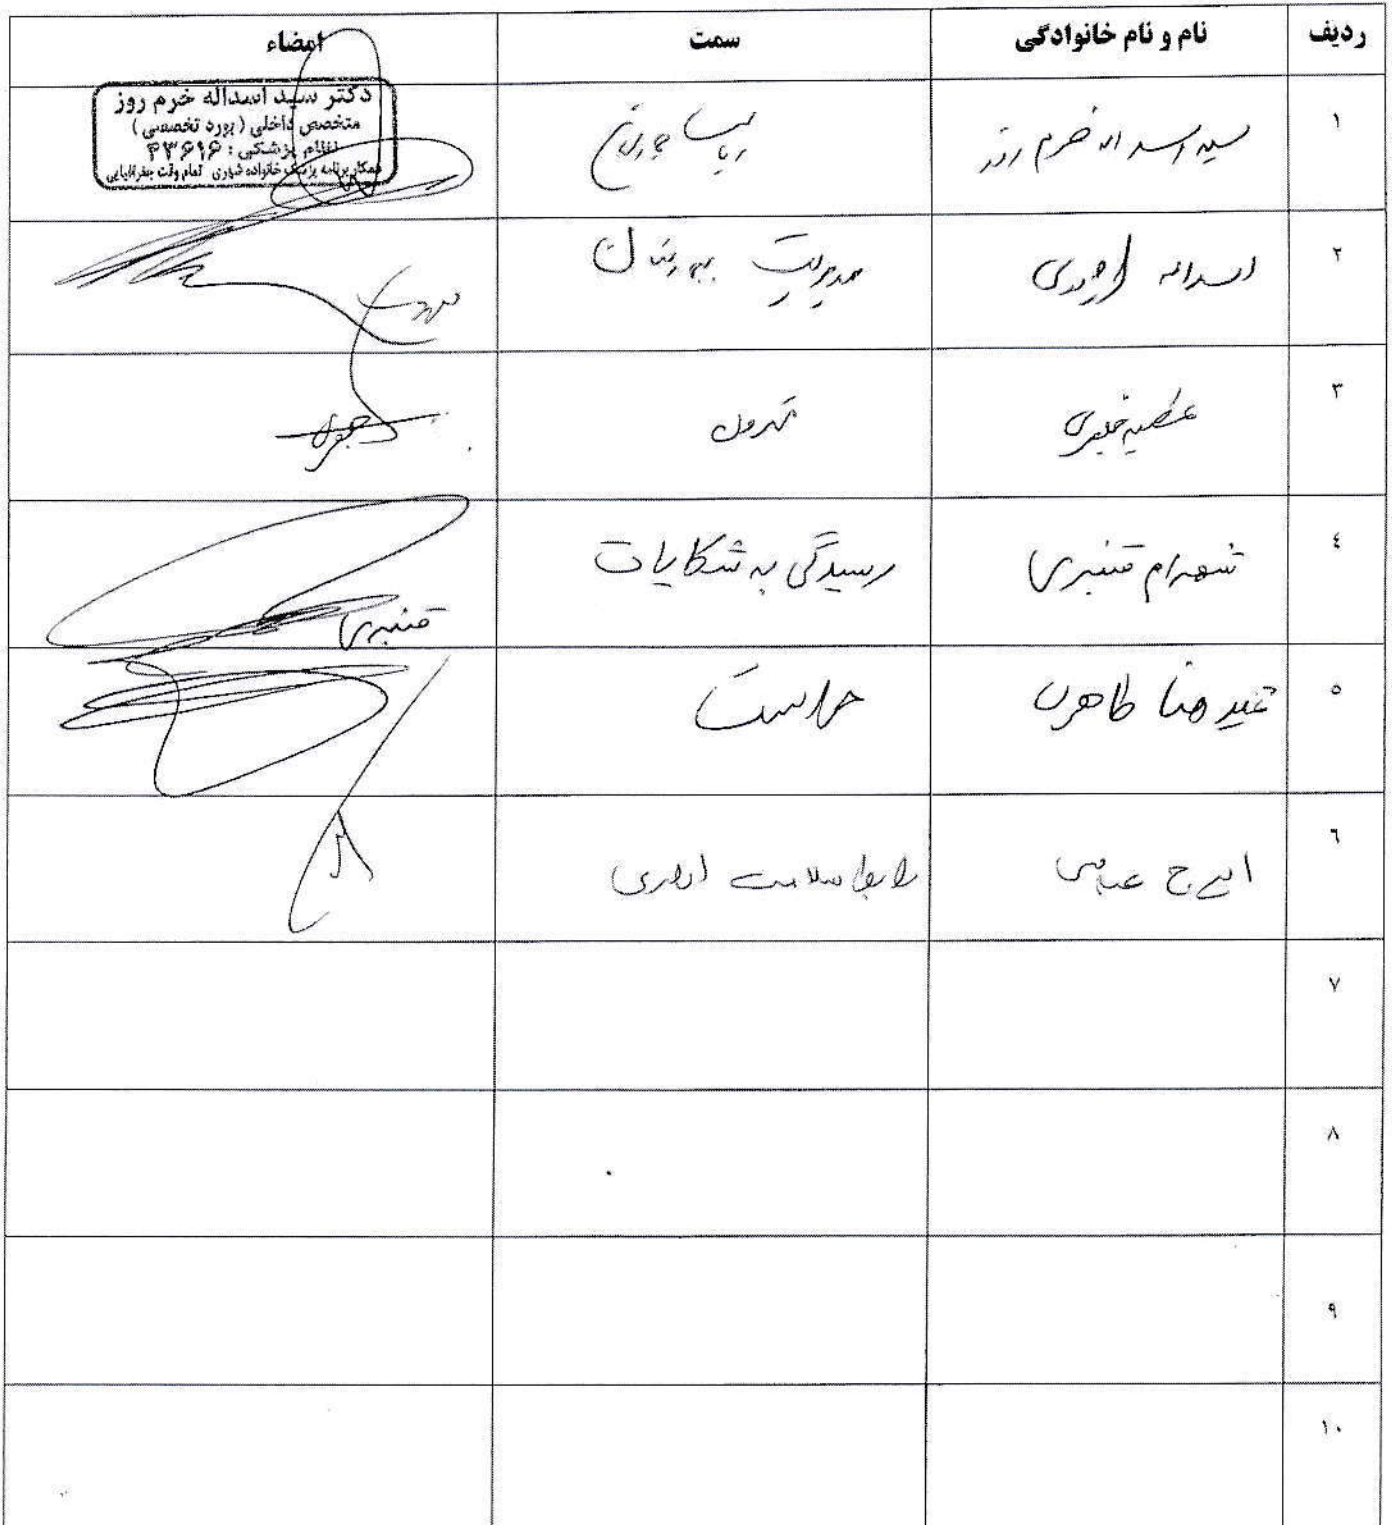 ردیف نام و نام خانوادگی سمت امضاء
۱ سید اسداله خرم روز
دکتر سید اسداله خرم روز
متخصص داخلی (بورد تخصصی)
نظام پزشکی: ۴۳۶۱۶
همکار برنامه پزشک خانواده شهری تمام وقت جغرافیایی
۲ اسداله مدیریت
۳ عطیه
٤ شهرام قنبری رسیدگی به شکایات
قنبری
٥ طاهری حراست
٦ ایرج عباسی رابط سلامت اداری
۷
۸
۹
۱۰